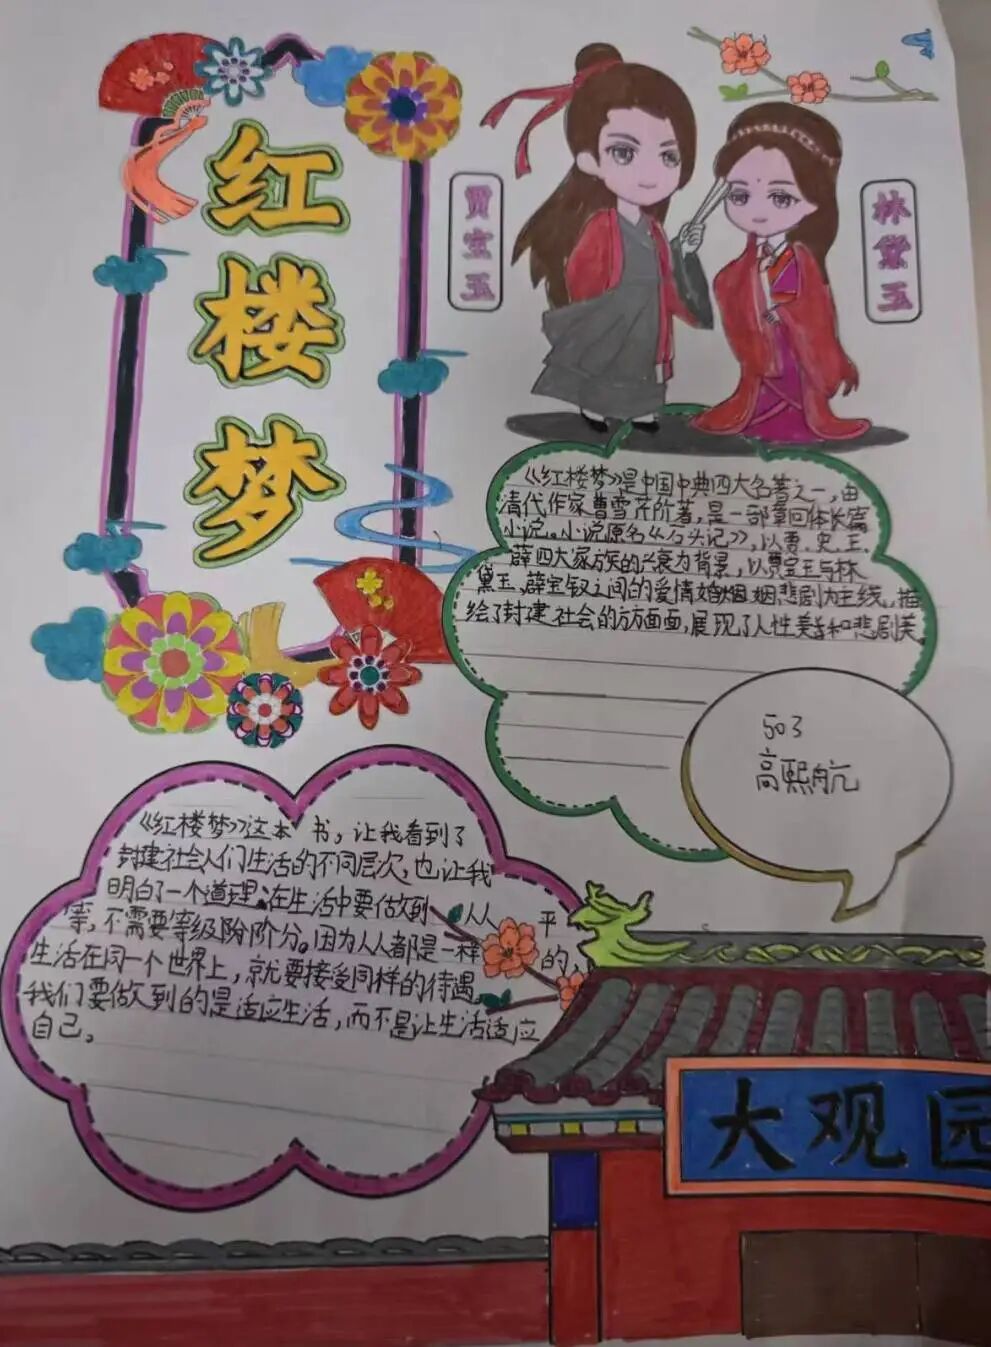 红楼梦
贾宝玉
林黛玉
《红楼梦》是中国中典四大名著之一,由
清代作家曹雪芹所著,是一部章回体长篇
小说。小说原名《石头记》,以贾、史、王、
薛四大家族的兴衰为背景,以贾宝玉与林
黛玉、薛宝钗之间的爱情婚烟姻悲剧为主线,描
绘了封建社会的方方面面,展现了人性美和悲剧美
503
高熙航
《红楼梦》这本书,让我看到了
封建社会人们生活的不同层次,也让我
明白了一个道理。在生活中要做到人人平
等,不需要等级阶阶分。因为人人都是一样的,
生活在同一个世界上,就要接受同样的待遇。
我们要做到的是适应生活,而不是让生活适应
自己。
大观园